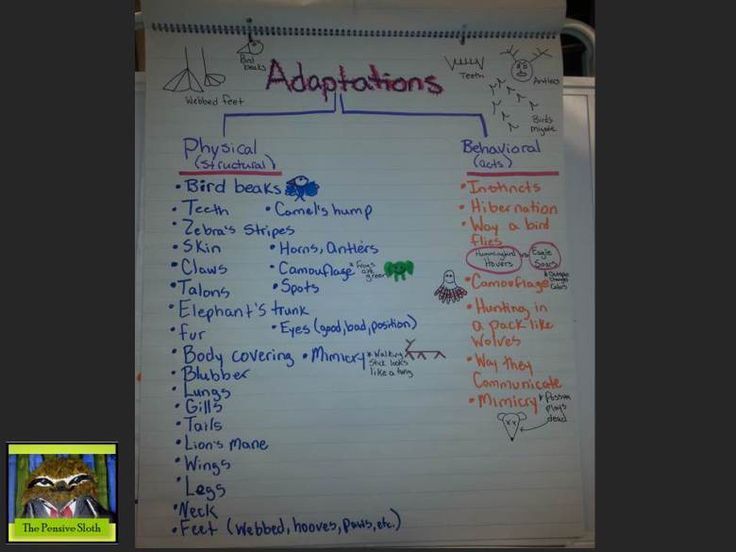 Bird beaks
Adaptations
Webbed feet
Teeth
Antlers
Birds migrate
Physical
(structural)
• Bird beaks
• Teeth • Camel's hump
• Zebra's stripes
• Skin • Horns, Antlers
• Claws • Camouflage * Frogs are green
• Talons • Spots
• Elephant's trunk
• Fur • Eyes (good, bad, position)
• Body covering • Mimicry * Walking stick looks like a twig
• Blubber
• Lungs
• Gills
• Tails
• Lion's mane
• Wings
• Legs
• Neck
• Feet (webbed, hooves, paws, etc.)
Behavioral
(acts)
• Instincts
• Hibernation
• Way a bird
flies
Hummingbird Hovers vs Eagle Soars
• Camouflage * Octopus changes colors
• Hunting in
a pack like
wolves
• Way they
Communicate
• Mimicry * Possum plays dead
The Pensive Sloth